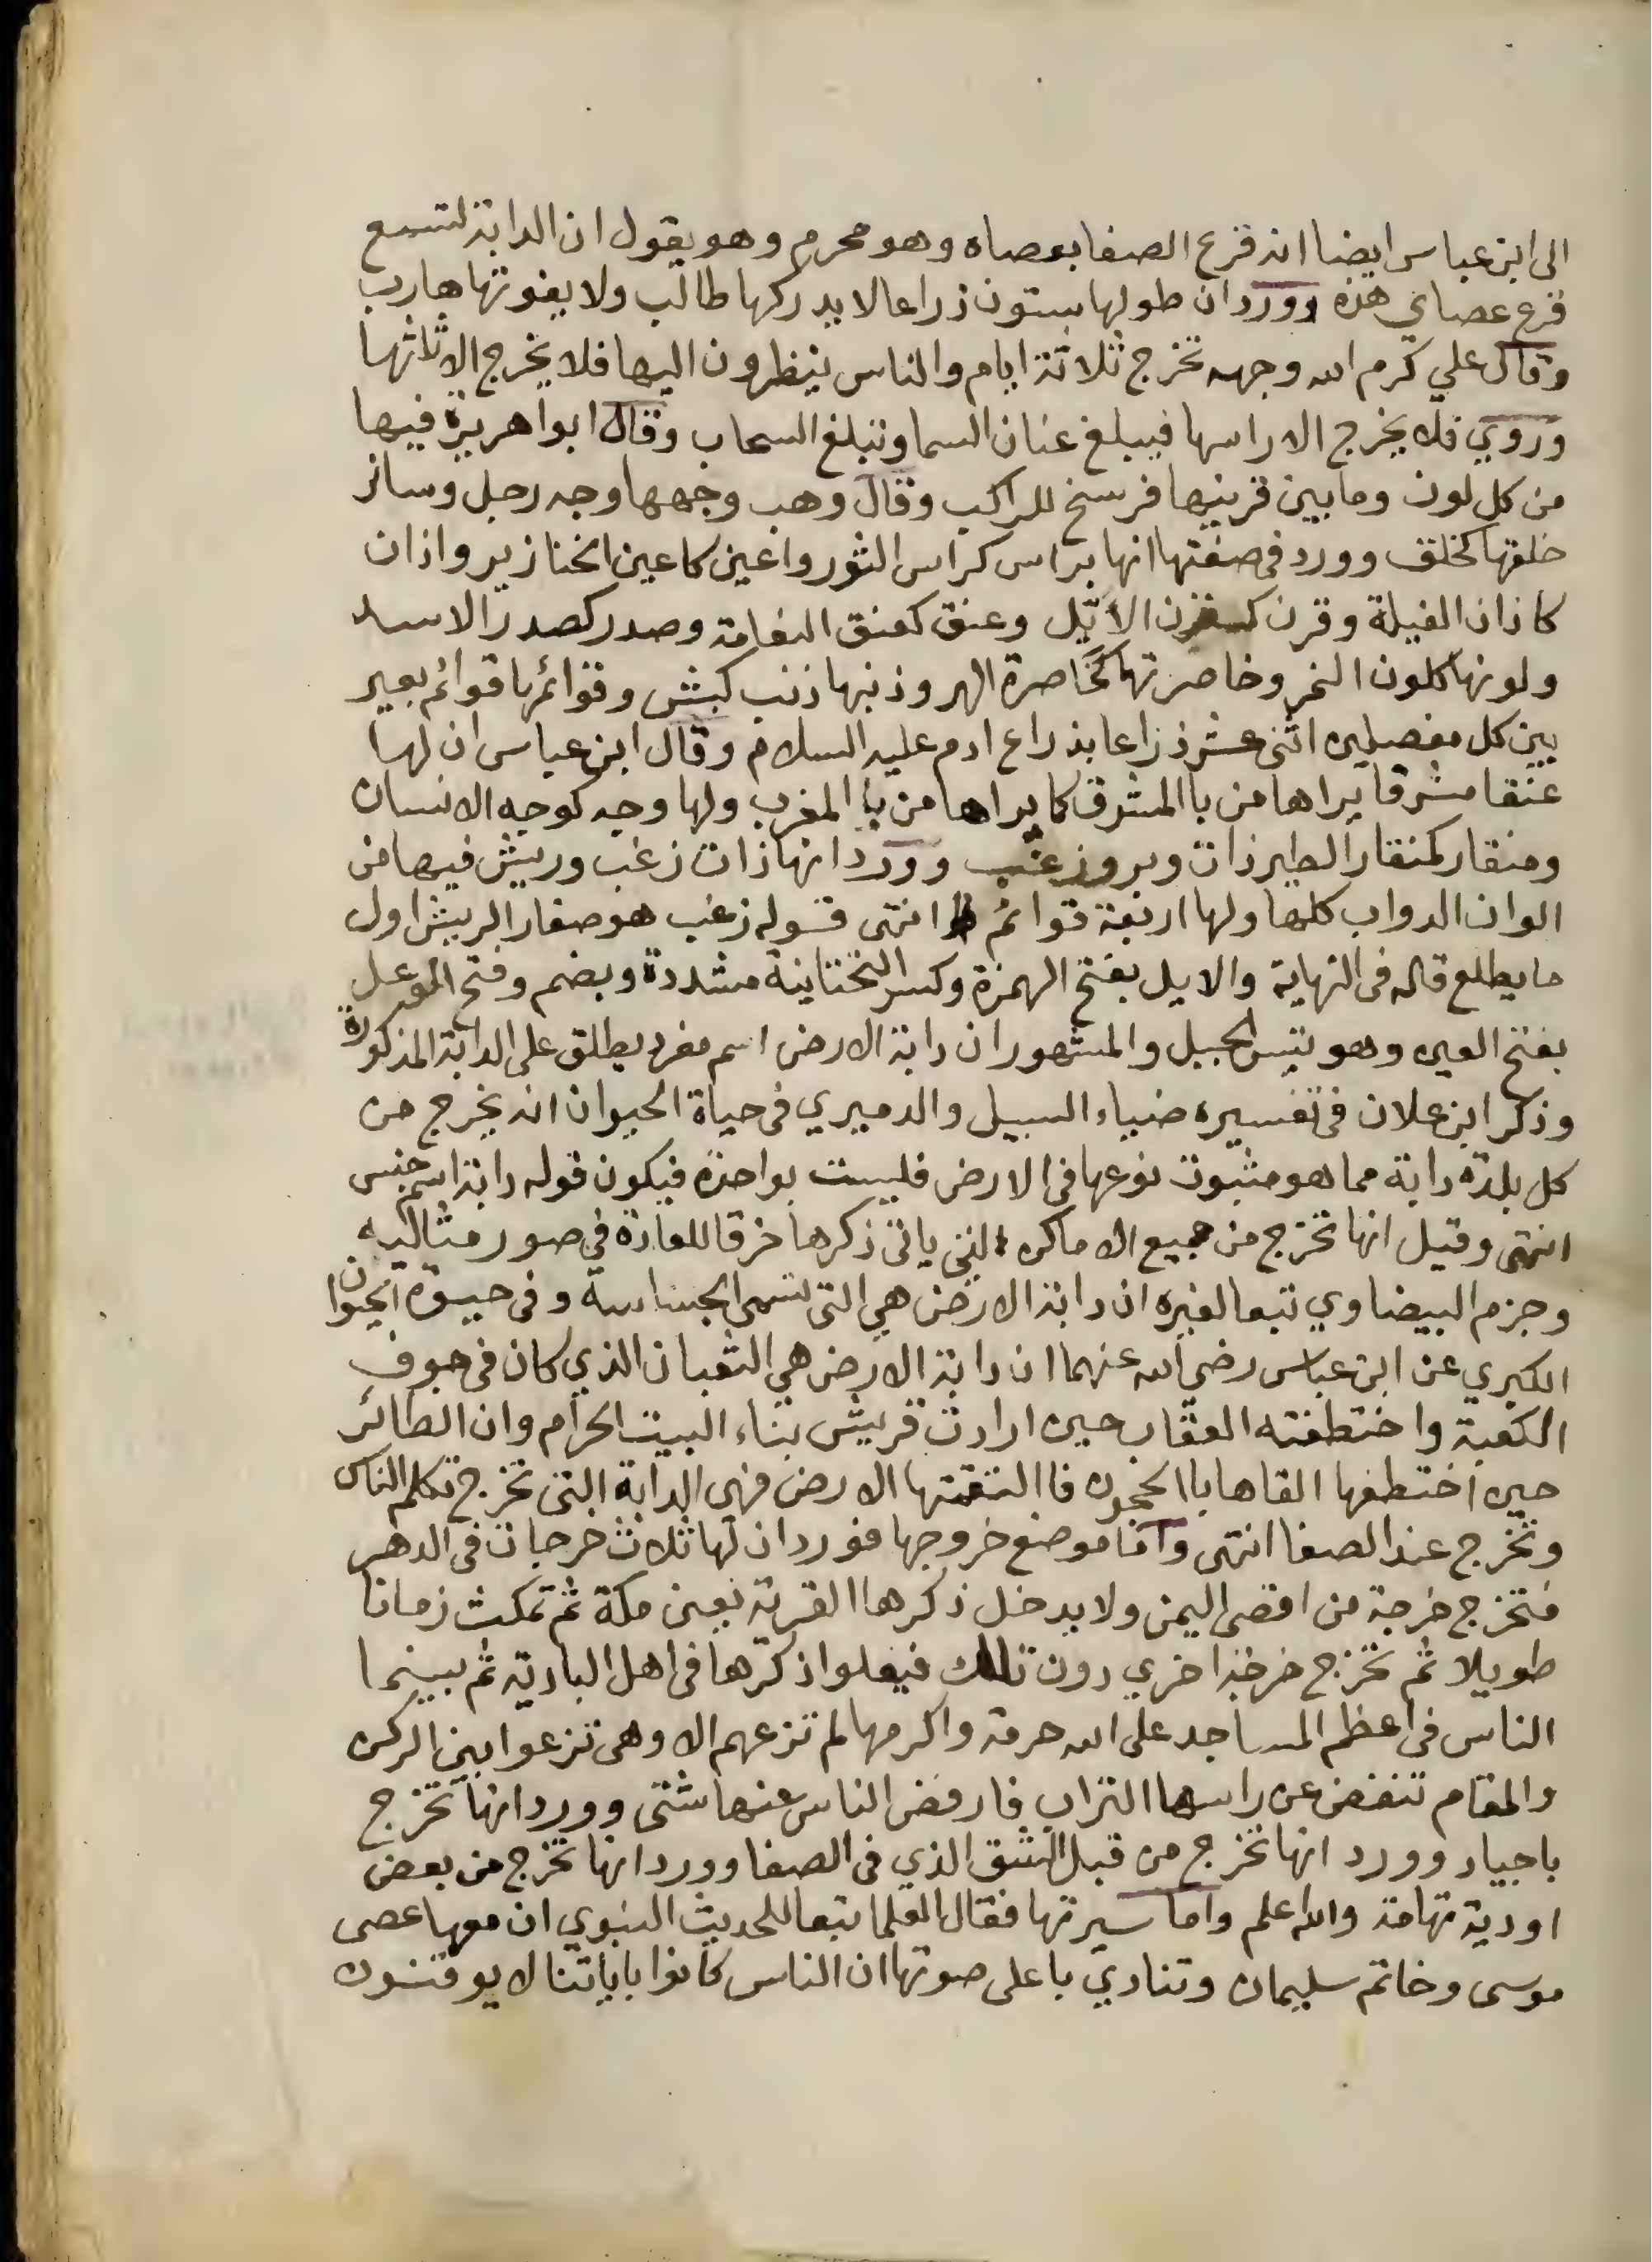 الى ابن عباس ايضا انه قرع الصفا بعصاه وهو محرم وهو يقول ان الدابة لتسمع
قرع عصاي هذه وورد ان طولها ستون ذراعا لا يدركها طالب ولا يفوتها هارب
وقال علي كرم الله وجهه تخرج ثلاثة ايام والناس ينظرون اليها فلا يخرج الا ثلثها
وروي فلا يخرج الا راسها فيبلغ عنان السما وتبلغ السحاب وقال ابوا هريرة فيها
من كل لون وما بين قرنيها فرسخ للراكب وقال وهب وجهها وجه رجل وسائر
خلقها كخلق وورد في صفتها انها براس كراس الثور واعين كاعين الخنازير واذان
كاذان الفيلة وقرن كقرن الايّل وعنق كعنق النعامة وصدر كصدر الاسد
ولونها كلون النمر وخاصرتها كخاصرة الهر وذنبها ذنب كبش وقوائمها قوائم بعير
بين كل مفصلين اثنى عشر ذراعا بذراع ادم عليه السلام وقال ابن عباس ان لها
عنقا مشرقا يراها من با المشرق كما يراها من با المغرب ولها وجه كوجه الانسان
ومنقار كمنقار الطير ذات وبر وزغب وورد انها ذات زغب وريش فيها من
الوان الدواب كلها ولها اربعة قوائم انتهى قوله زغب هو صغار الريش اول
ما يطلع قاله في النهاية والايل بفتح الهمزة وكسر التحتانية مشددة وبضم وفتح الموعل
بفتح العين وهو تيس الجبل والمشهور ان دابة الارض اسم مفرد يطلق على الدابة المذكورة
وذكر ابن علان في تفسيره ضياء السبيل والدميري في حياة الحيوان انه يخرج من
كل بلدة دابة مما هو مثبوت نوعها في الارض فليست بواحدة فيكون قوله دابة اسم جنس
انتهى وقيل انها تخرج من جميع الاماكن التي ياتى ذكرها خرقا للعادة في صور مثاليه
وجزم البيضاوي تبعا لغيره ان دابة الارض هي التى تسمى الجساسة وفي حيوة الحيوان
الكبري عن ابن عباس رضي الله عنهما ان دابة الارض هي الثعبان الذي كان في جوف
الكعبة واختطفته العقاب حين ارادت قريش بناء البيت الحرام وان الطائر
حين اختطفها القاها باالحجون فاالتقتها الارض فهي الدابة التى تخرج تكلم الناس
وتخرج عند الصفا انتهى واما موضع خروجها فورد ان لها ثلاث خرجات في الدهر
فتخرج خرجة من اقصى اليمن ولا يدخل ذكرها القرية يعنى مكة ثم تمكث زمانا
طويلا ثم تخرج خرجة اخري دون تلك فيعلوا ذكرها في اهل البادية ثم بينما
الناس في اعظم المساجد على الله حرمة واكرمها لم تزعهم الا وهي تزعوا بين الركن
والمقام تنفض عن راسها التراب فارفض الناس عنها شتى وورد انها تخرج
باجياد وورد انها تخرج من قبل الشق الذي في الصفا وورد انها تخرج من بعض
اودية تهامة والله اعلم واما سيرتها فقال العلما تبعا للحديث النبوي ان معها عصى
موسى وخاتم سليمان وتنادي باعلى صوتها ان الناس كانوا باياتنا لا يوقنون